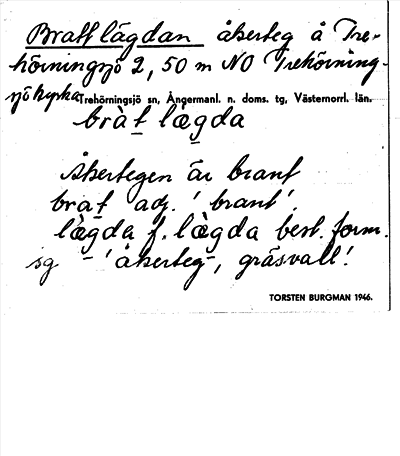 Brattlägdan åkerteg å Tre-
hörningsjö 2, 50 m NO Trehörning-
sjö kyrka. Trehörningsjö sn, Ångermanl. n. doms. tg, Västernorrl. län.
bràt lægda
Åkertegen är brant
brat adj. 'brant'.
lægda f. lægda best. form.
sg - 'åkerteg, gräsvall'.
TORSTEN BURGMAN 1946.